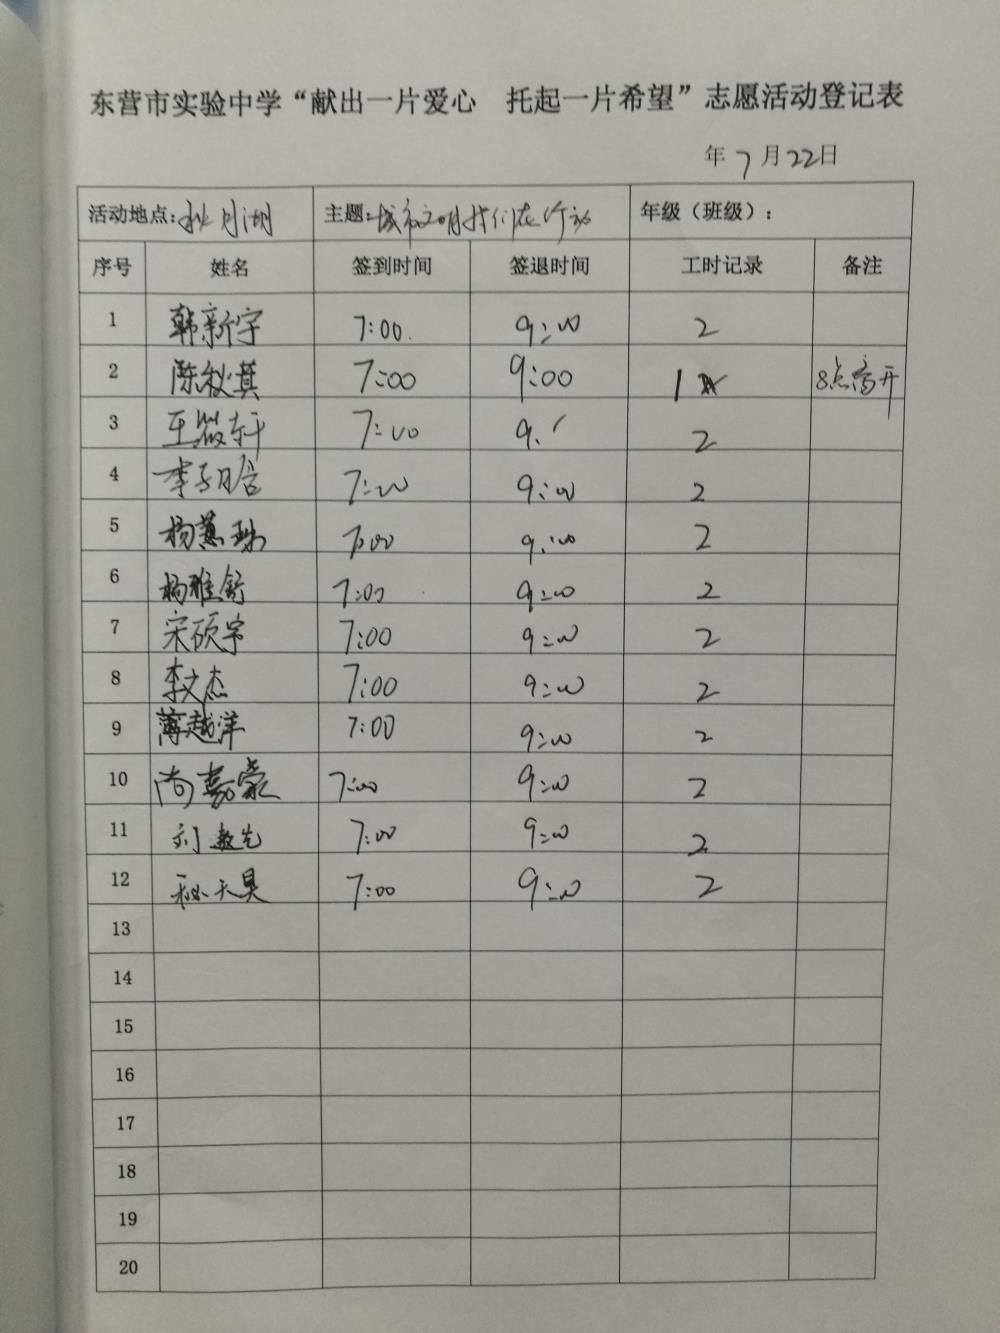 东营市实验中学“献出一片爱心 托起一片希望”志愿活动登记表
年7月22日
活动地点:秋月湖 主题:城市文明我们在行动 年级（班级）:
序号 姓名 签到时间 签退时间 工时记录 备注
1 韩新宇 7:00 9:00 2
2 陈秋萁 7:00 9:00 1 8点离开
3 王筱轩 7:00 9: 2
4 李子晗 7:00 9:00 2
5 杨蕙 7:00 9:00 2
6 杨雅舒 7:00 9:00 2
7 宋硕宇 7:00 9:00 2
8 李文杰 7:00 9:00 2
9 薄越洋 7:00 9:00 2
10 尚嘉豪 7:00 9:00 2
11 刘 7:00 9:00 2
12 秘天昊 7:00 9:00 2
13
14
15
16
17
18
19
20